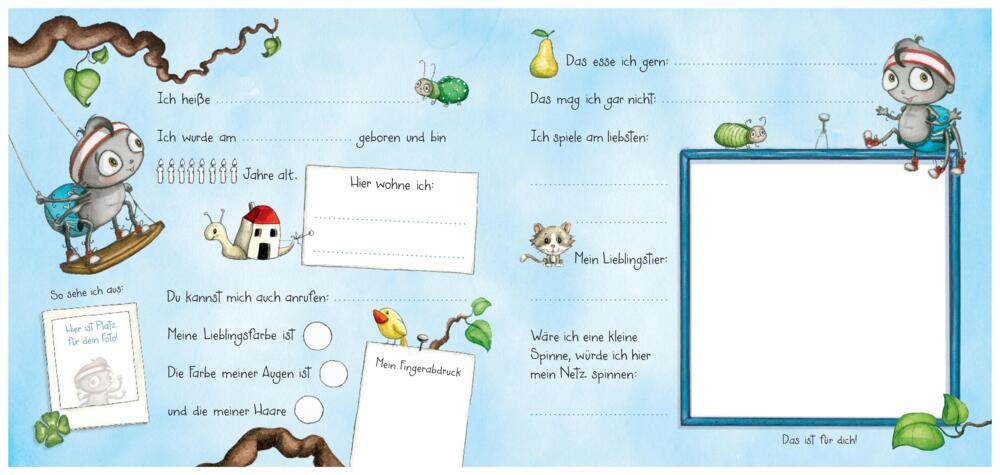 Ich heiße
Ich wurde am geboren und bin
Jahre alt.
Hier wohne ich:
So sehe ich aus:
Hier ist Platz
für dein Foto!
Du kannst mich auch anrufen:
Meine Lieblingsfarbe ist
Die Farbe meiner Augen ist
und die meiner Haare
Mein Fingerabdruck
Das esse ich gern:
Das mag ich gar nicht:
Ich spiele am liebsten:
Mein Lieblingstier:
Wäre ich eine kleine
Spinne, würde ich hier
mein Netz spinnen:
Das ist für dich!